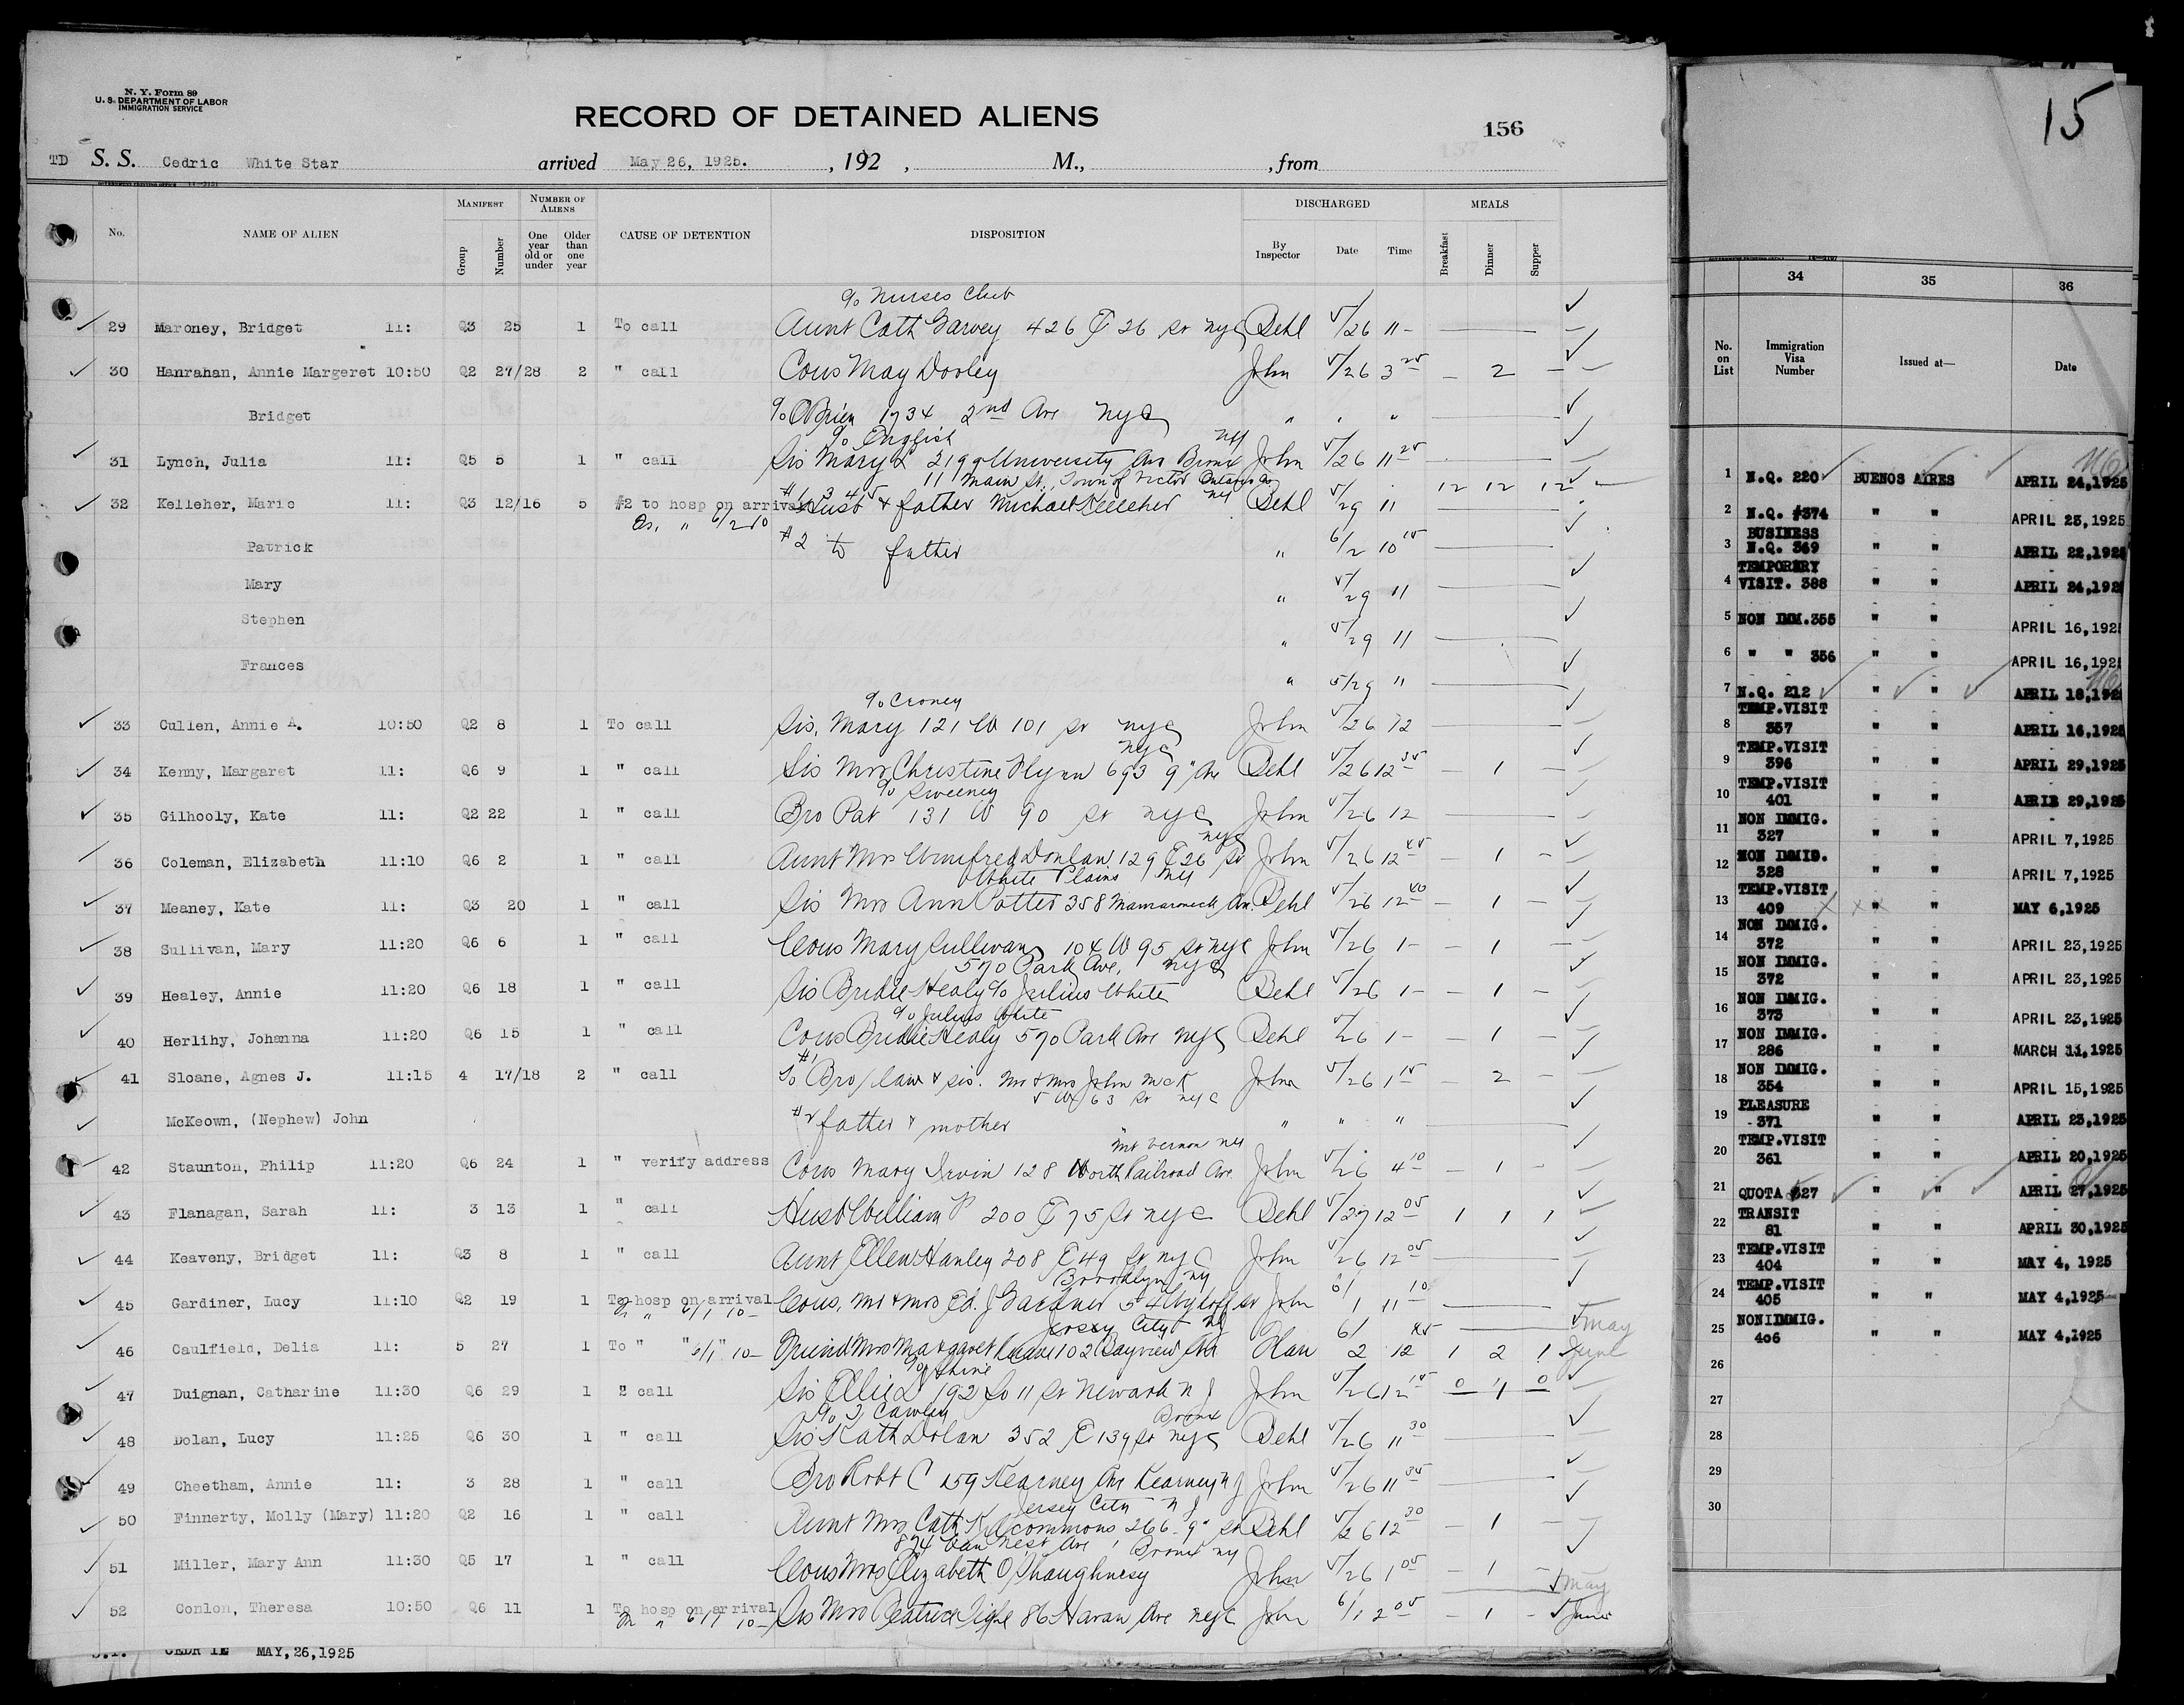 N. Y. Form 89
U. S. DEPARTMENT OF LABOR
IMMIGRATION SERVICE
RECORD OF DETAINED ALIENS
156
TD S. S. Cedric White Star arrived May 26, 1925. , 192 , M., , from
No. NAME OF ALIEN MANIFEST Group Number NUMBER OF ALIENS One year old or under Older than one year CAUSE OF DETENTION DISPOSITION DISCHARGED By Inspector Date Time MEALS Breakfast Dinner Supper
c/o Nurses Club
29 Maroney, Bridget 11: Q3 25 1 To call Aunt Cath Garvey 426 E 26 St NYC Behl 5/26 11 -
30 Hanrahan, Annie Margeret 10:50 Q2 27/28 2 " call Cous May Dooley John 5/26 3 25 - 2 -
Bridget c/o OBrien 1734 2nd Ave NYC " " "
c/o English NY
31 Lynch, Julia 11: Q5 5 1 " call Sis Mary L 2199 University Ave Bronx John 5/26 11 25
11 Main St., Town of Victor Ontario Co NY
32 Kelleher, Marie 11: Q3 12/16 5 #2 to hosp on arrival #1 3 4 5 Husb & father Michael Kelleher Behl 5/29 11 12 12 12
" 6/2 10
Patrick #2 to father " 6/2 10 15
Mary " 5/29 11
Stephen " 5/29 11
Frances " 5/29 11
c/o Croney
33 Cullen, Annie A. 10:50 Q2 8 1 To call Sis. Mary 121 W 101 St NYC John 5/26 12
NYC
34 Kenny, Margaret 11: Q6 9 1 " call Sis Mrs Christine Flynn 693 9" Ave Behl 5/26 12 35 - 1 -
c/o Sweeney
35 Gilhooly, Kate 11: Q2 22 1 " call Bro Pat 131 W 90 St NYC John 5/26 12
NYC
36 Coleman, Elizabeth 11:10 Q6 2 1 " call Aunt Mrs Winifred Donlan 129 E 26 St John 5/26 12 45 - 1 -
White Plains NY
37 Meaney, Kate 11: Q3 20 1 " call Sis Mrs Ann Potter 358 Mamaroneck Ave. Behl 5/26 12 40 - 1 -
38 Sullivan, Mary 11:20 Q6 6 1 " call Cous Mary Sullivan 104 W 95 St NYC John 5/26 1 - - 1 -
570 Park Ave, NYC
39 Healey, Annie 11:20 Q6 18 1 " call Sis Bridie Healy c/o Julius White Behl 5/26 1 - - 1 -
c/o Julius White
40 Herlihy, Johanna 11:20 Q6 15 1 " call Cous Bridie Healy 570 Park Ave NYC Behl 5/26 1 - - 1 -
41 Sloane, Agnes J. 11:15 4 17/18 2 " call #1 To Bro/law & sis. Mr & Mrs John McK John 5/26 1 15 - 2 -
5 W 63 St NYC
McKeown, (Nephew) John #2 father & mother " " "
Mt Vernon NY
42 Staunton, Philip 11:20 Q6 24 1 " verify address Cous Mary Irvin 128 North Railroad Ave. John 5/26 4 10 - 1 -
43 Flanagan, Sarah 11: 3 13 1 " call Husb William P 200 E 75 St NYC Behl 5/27 12 05 1 1 1
44 Keaveny, Bridget 11: Q3 8 1 " call Aunt Ellen Hanley 208 E 49 St NYC John 5/26 12 05
Brooklyn NY
45 Gardiner, Lucy 11:10 Q2 19 1 To hosp on arrival Cous, Mr & Mrs Ed. J Gardner 54 Wyckoff St John 6/1 11 10
" 6/1 10 -
Jersey City NJ May
46 Caulfield, Delia 11: 5 27 1 To " " 6/1 10 - Friend Mrs Margaret 102 Bayview Ave Han 6/2 12 45 1 2 1 June
47 Duignan, Catharine 11:30 Q6 29 1 " call Sis Ellie D 192 So 11 St Newark N J John 5/26 12 15 0 1 0
Bronx
48 Dolan, Lucy 11:25 Q6 30 1 " call Sis Kath Dolan 352 E 139 St NYC Behl 5/26 11 30
49 Cheetham, Annie 11: 3 28 1 " call Bro Robt C 159 Kearney Ave Kearney N J John 5/26 11 35
Jersey City N J
50 Finnerty, Molly (Mary) 11:20 Q2 16 1 " call Aunt Mrs Cath 266 - 9" St Behl 5/26 12 30 - 1 -
874 Van Nest Ave, Bronx NY
51 Miller, Mary Ann 11:30 Q5 17 1 " call Cous Mrs Elizabeth O'Shaughnesy John 5/26 1 05 - 1 -
May
52 Conlon, Theresa 10:50 Q6 11 1 To hosp on arrival Sis Mrs Beatrice Tighe 86 Haven Ave NYC John 6/1 2 05 - 1 - June
" 6/1 10 -
MAY,26,1925
15
34 35 36
No. on List Immigration Visa Number Issued at— Date
1 N.Q. 220 BUENOS AIRES APRIL 24,1925
2 N.Q. #374 " " APRIL 23,1925
BUSINESS
3 N.Q. 369 " " APRIL 22,1925
TEMPORERY
4 VISIT. 388 " " APRIL 24,192
5 NON IMM.355 " " APRIL 16,192
6 " " 356 " " APRIL 16,192
7 N.Q. 212 " " APRIL 18,192
TEMP.VISIT
8 357 " " APRIL 16,1925
TEMP.VISIT
9 396 " " APRIL 29,1925
TEMP.VISIT
10 401 " " APRIL 29,1925
NON IMMIG.
11 327 " " APRIL 7,1925
NON IMMIG.
12 328 " " APRIL 7,1925
TEMP.VISIT
13 409 " " MAY 6,1925
NON IMMIG.
14 372 " " APRIL 23,1925
NON IMMIG.
15 372 " " APRIL 23,1925
NON IMMIG.
16 373 " " APRIL 23,1925
NON IMMIG.
17 286 " " MARCH 11,1925
NON IMMIG.
18 354 " " APRIL 15,1925
PLEASURE
19 371 " " APRIL 23,1925
TEMP.VISIT
20 361 " " APRIL 20,1925
21 QUOTA 327 " " APRIL 27,1925
TRANSIT
22 81 " " APRIL 30,1925
TEMP.VISIT
23 404 " " MAY 4, 1925
TEMP.VISIT
24 405 " " MAY 4,1925
NONIMMIG.
25 406 " " MAY 4,1925
26
27
28
29
30